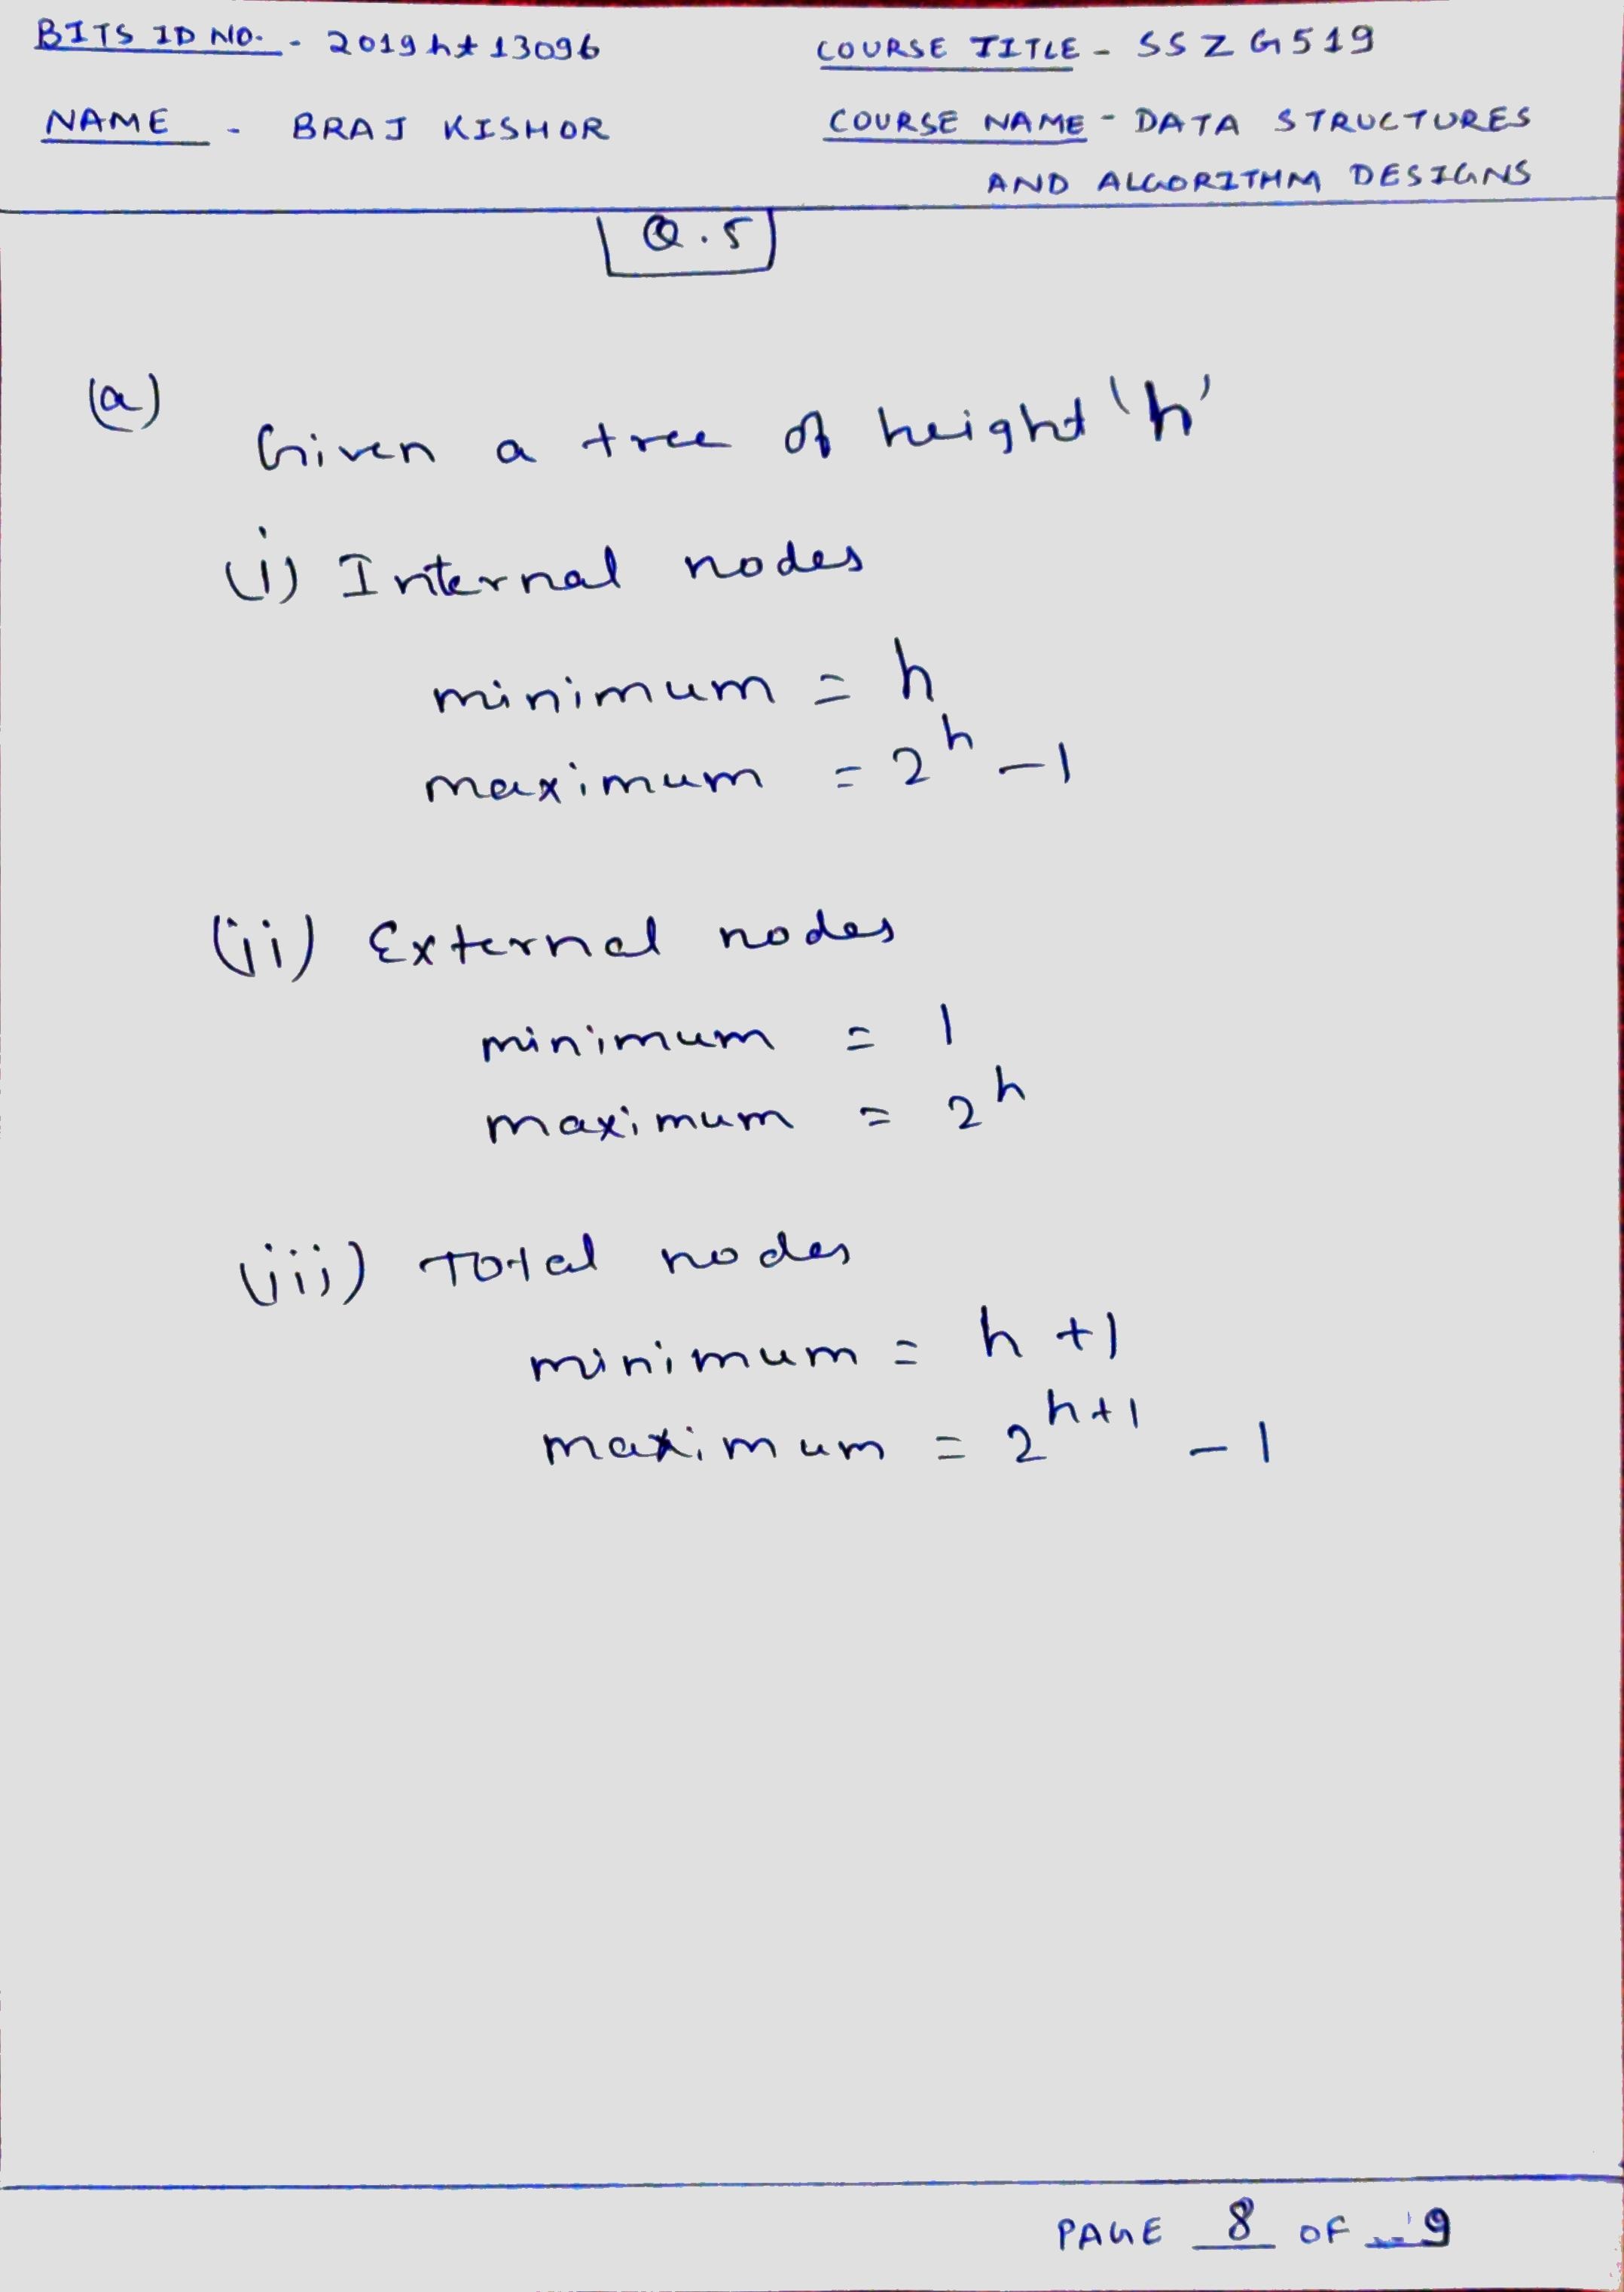 BITS ID NO. - 2019ht13096
COURSE TITLE - SSZG519
NAME - BRAJ KISHOR
COURSE NAME - DATA STRUCTURES
AND ALGORITHM DESIGNS
Q.5
(a)
Given a tree of height 'h'
(i) Internal nodes
minimum = h
maximum = 2^h - 1
(ii) External nodes
minimum = 1
maximum = 2^h
(iii) Total nodes
minimum = h + 1
maximum = 2^h+1 - 1
PAGE 8 OF 9